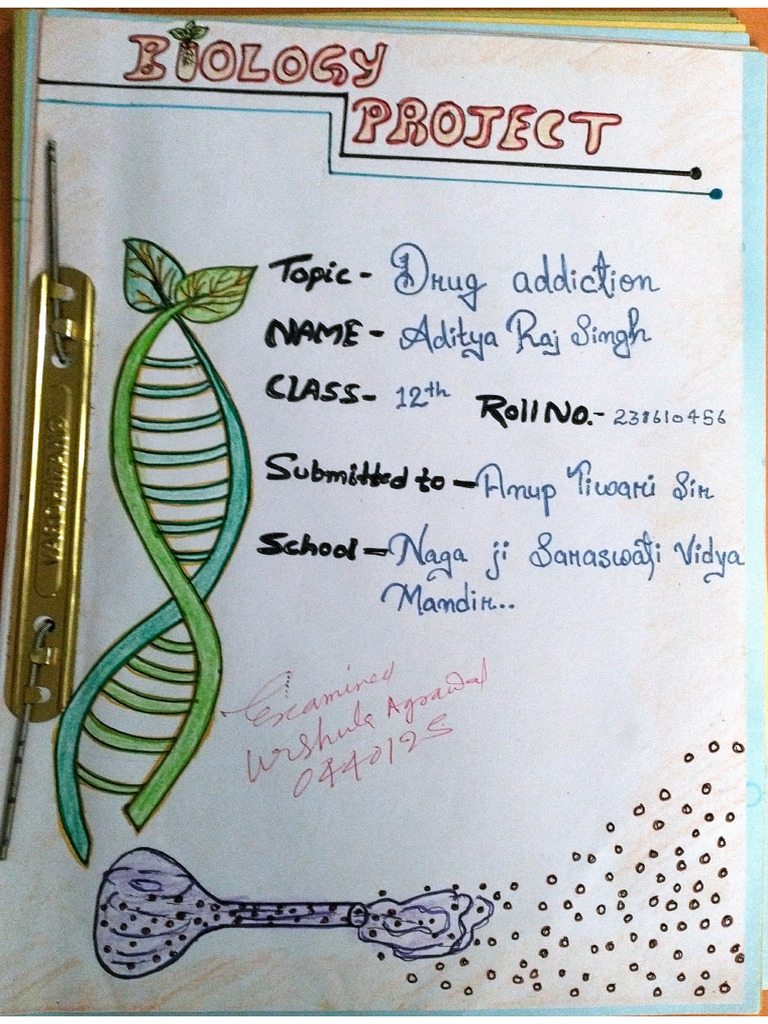 BIOLOGY
PROJECT
Topic - Drug addiction
NAME - Aditya Raj Singh
CLASS - 12th Roll No.- 231610456
Submitted to - Anup Tiwari Sir
School - Naga ji Saraswati Vidya
Mandir..
VARDHMAN
Examined
Urshula Agrawal
0440125